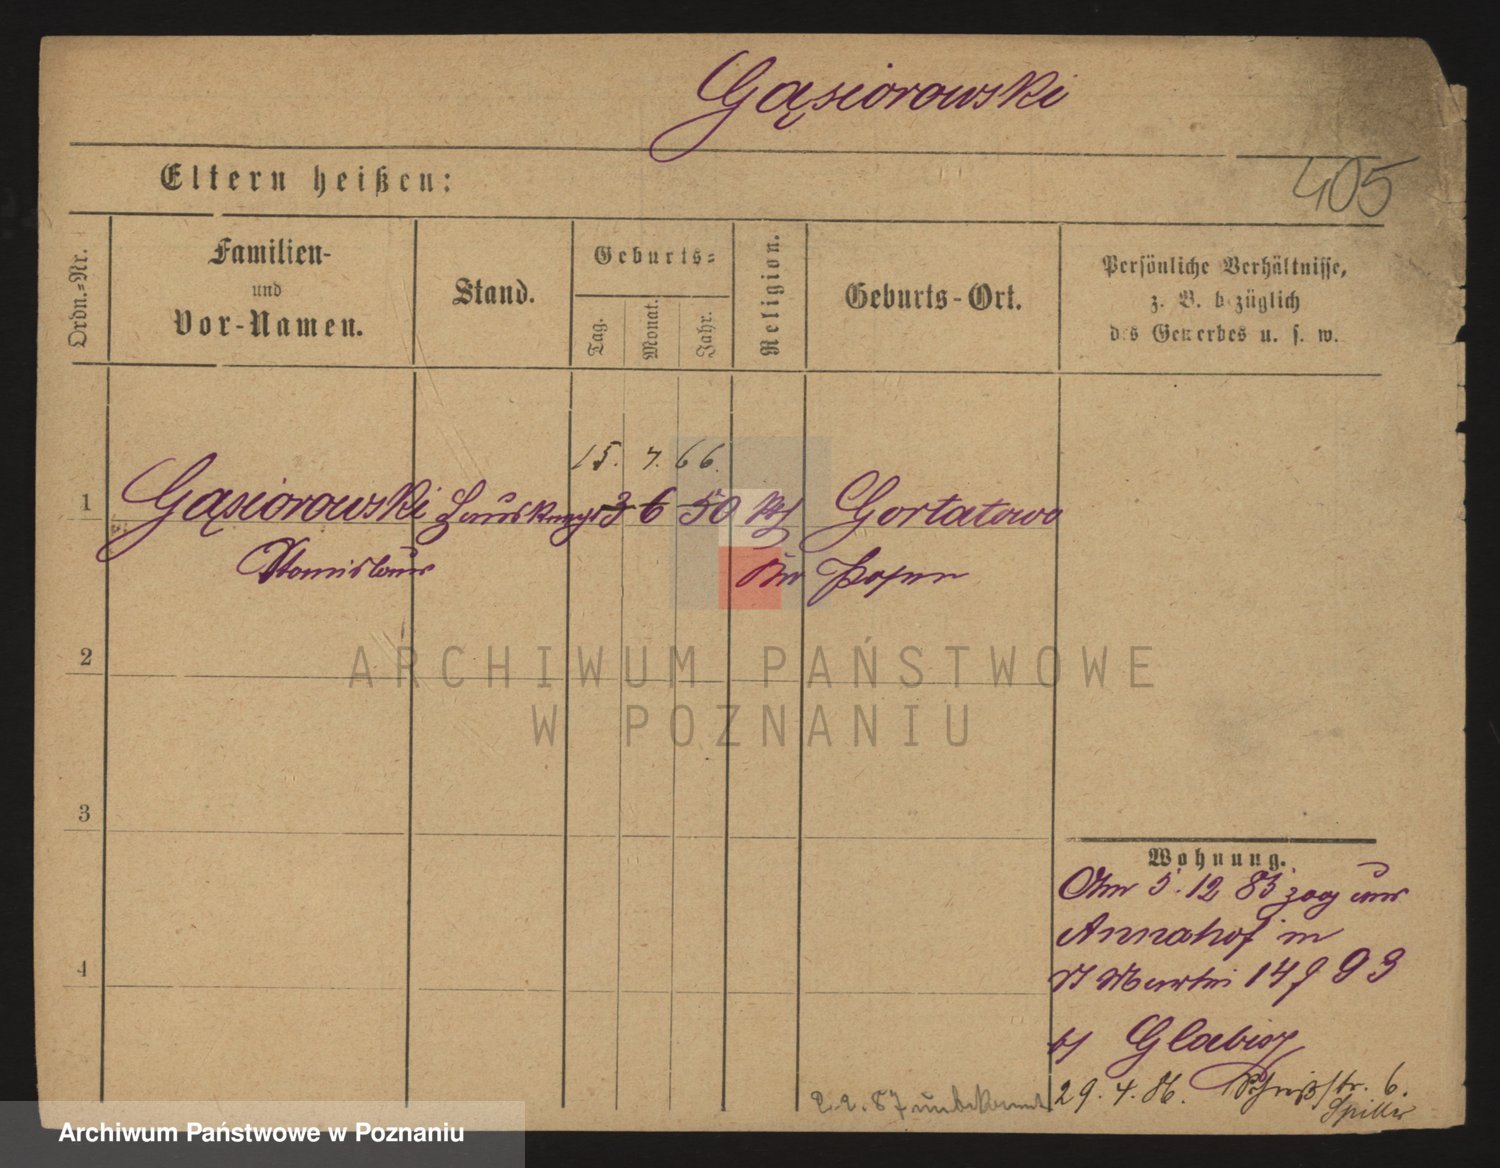 Gąsiorowski
405
Eltern heißen:
Ordn.-Nr.
Familien-
und
Vor-Namen.
Stand.
Geburts-
Tag.
Monat.
Jahr.
Religion.
Geburts-Ort.
Persönliche Verhältnisse,
z. B. bezüglich
des Gewerbes u. s. w.
15. 7. 66.
1 Gąsiorowski Hausknecht 3 6 50 kt Gortatowo
Stanislaus Posen
2
ARCHIWUM PAŃSTWOWE
W POZNANIU
3
4
Wohnung.
Am 5. 12 85 zog aus
Annahof in
St Martin 14 93
b/ Glabisz
29. 4. 86. 6.
2. 2. 87 unbekannt
Archiwum Państwowe w Poznaniu